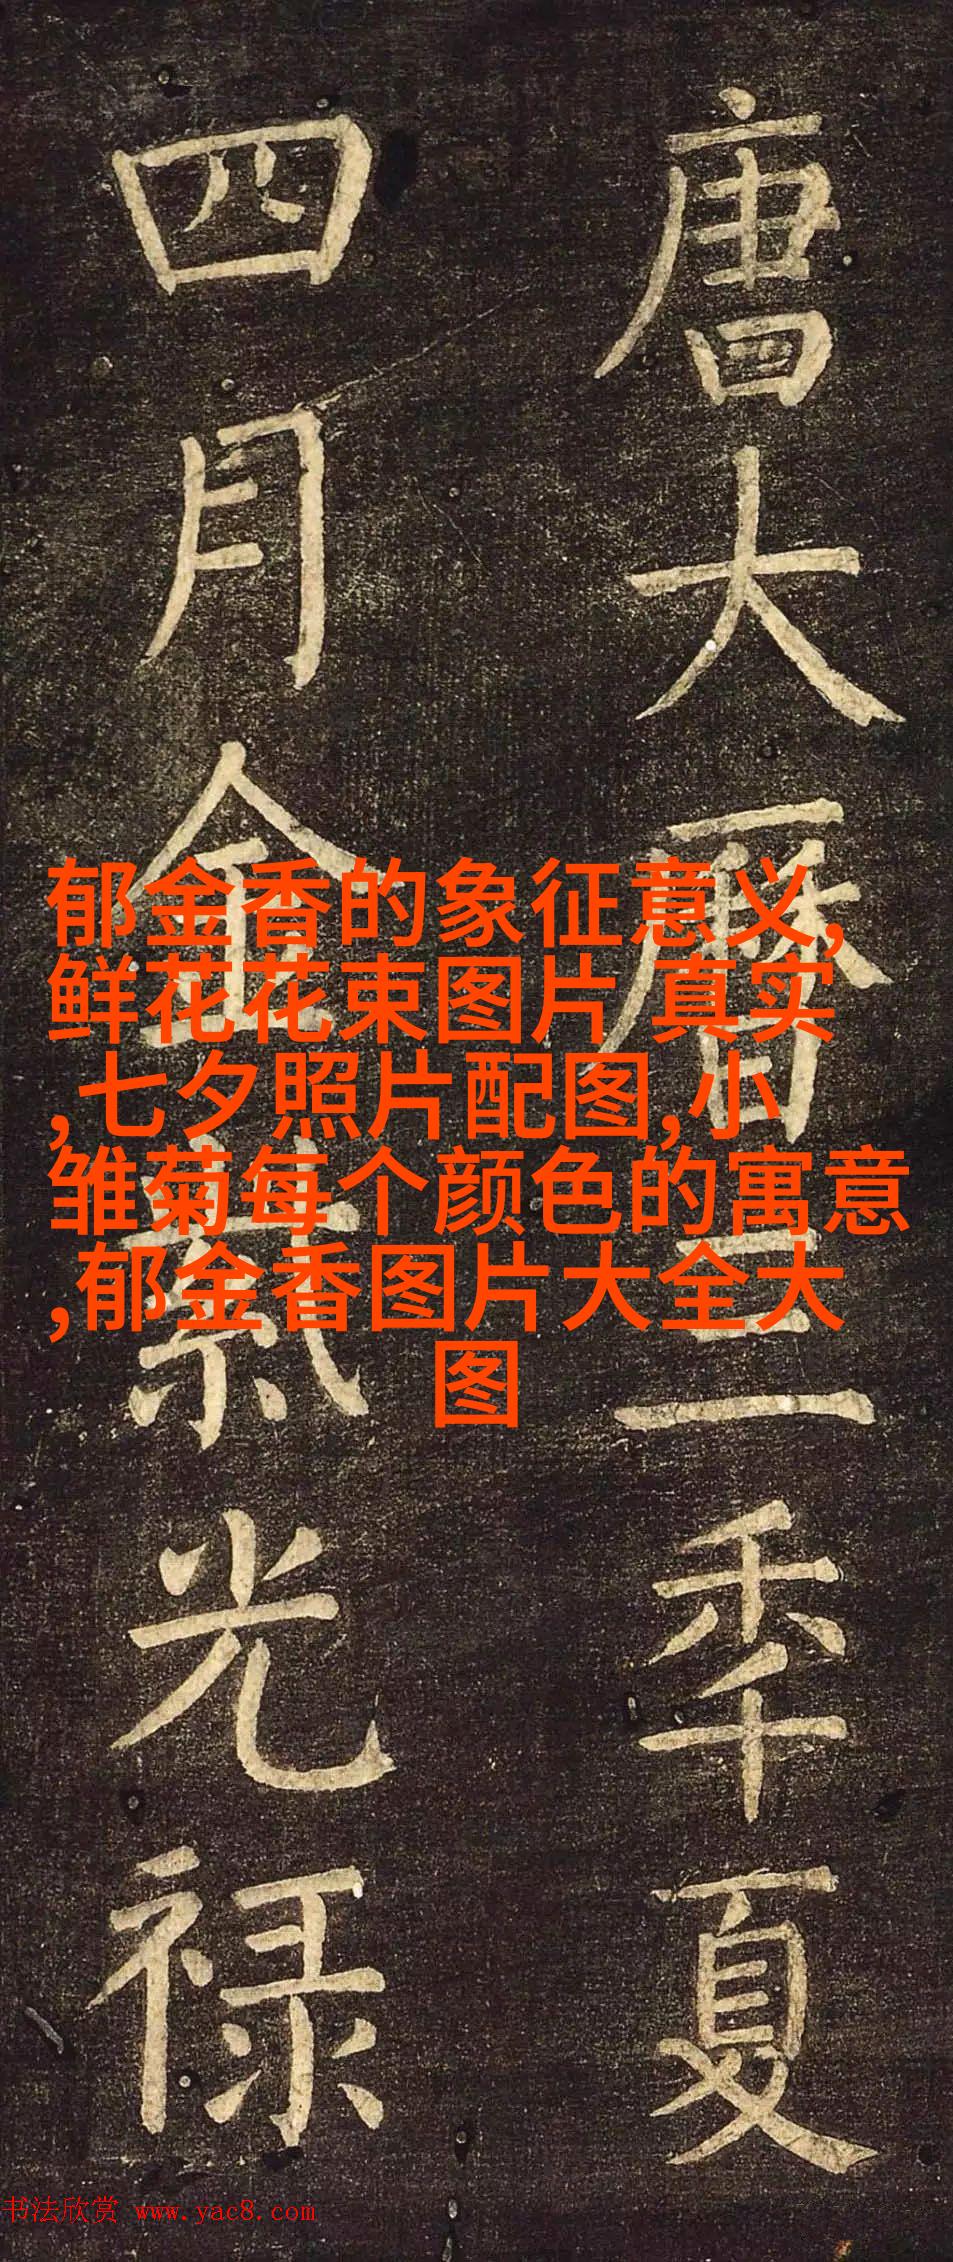 唐大曆三秊夏
四月金紫光禄
郁金香的象征意义,
鲜花花束图片 真实
,七夕照片配图,小
雏菊每个颜色的寓意
,郁金香图片大全大
图
书法欣赏 www.yac8.com